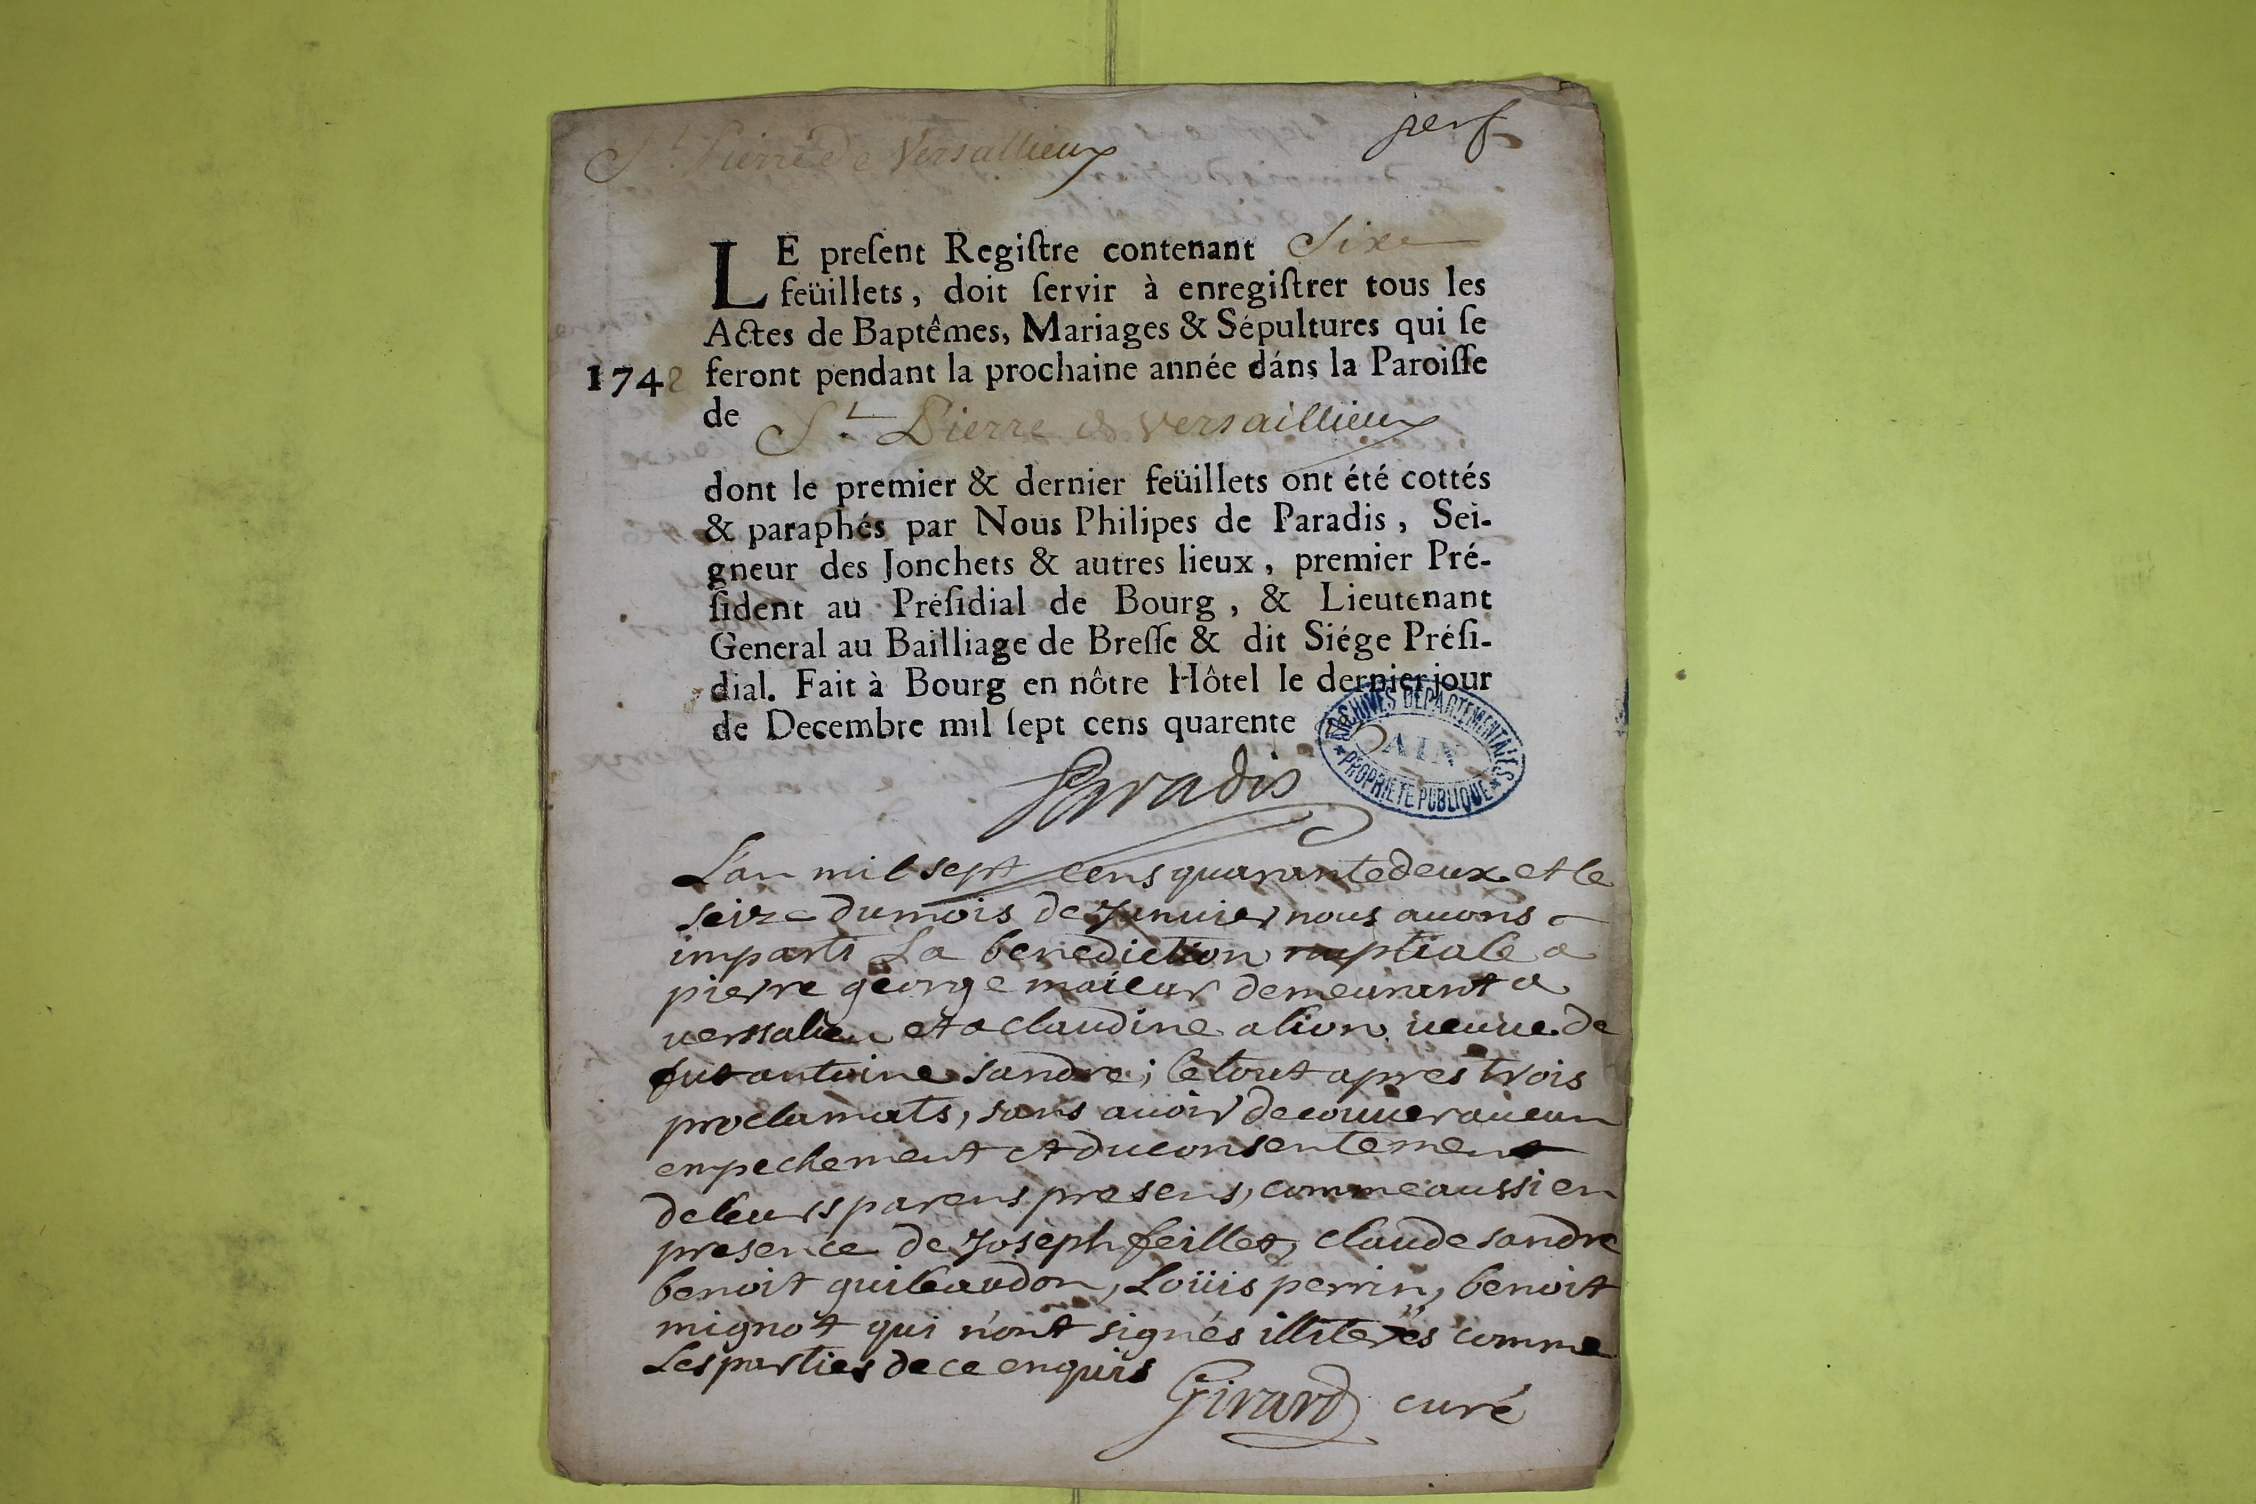 St Pierre de Versallieux
LE preſent Regiſtre contenant Sixe
feüillets, doit ſervir à enregiſtrer tous les
Actes de Baptêmes, Mariages & Sépultures qui ſe
1742 feront pendant la prochaine année dáns la Paroiſſe
de St. Pierre de Versaillieux
dont le premier & dernier feüillets ont été cottés
& paraphés par Nous Philipes de Paradis, Sei-
gneur des Jonchets & autres lieux, premier Pré-
ſident au Préſidial de Bourg, & Lieutenant
General au Bailliage de Breſſe & dit Siége Préſi-
dial. Fait à Bourg en nôtre Hôtel le dernier jour
de Decembre mil ſept cens quarente
ARCHIVES DEPARTEMENTALES
AIN
PROPRIETE PUBLIQUE
Paradis
L'an mil sept cens quarante deux et le
seize du mois de Janvier nous auons
imparti La benediction nuptiale a
pierre george maieur demeurant a
versalieu et a claudine alion ueuue de
fut antoine sandre; le tout apres trois
proclamats, sans auoir decouuer aucun
empechement et du consentement
de leurs parens presens, comme aussi en
presence de Joseph feillet, claude sandre
benoit guibaudon, Loüis perrin, benoit
mignot qui n'ont signés illiterés comme
Les parties de ce enquis
Girard curé